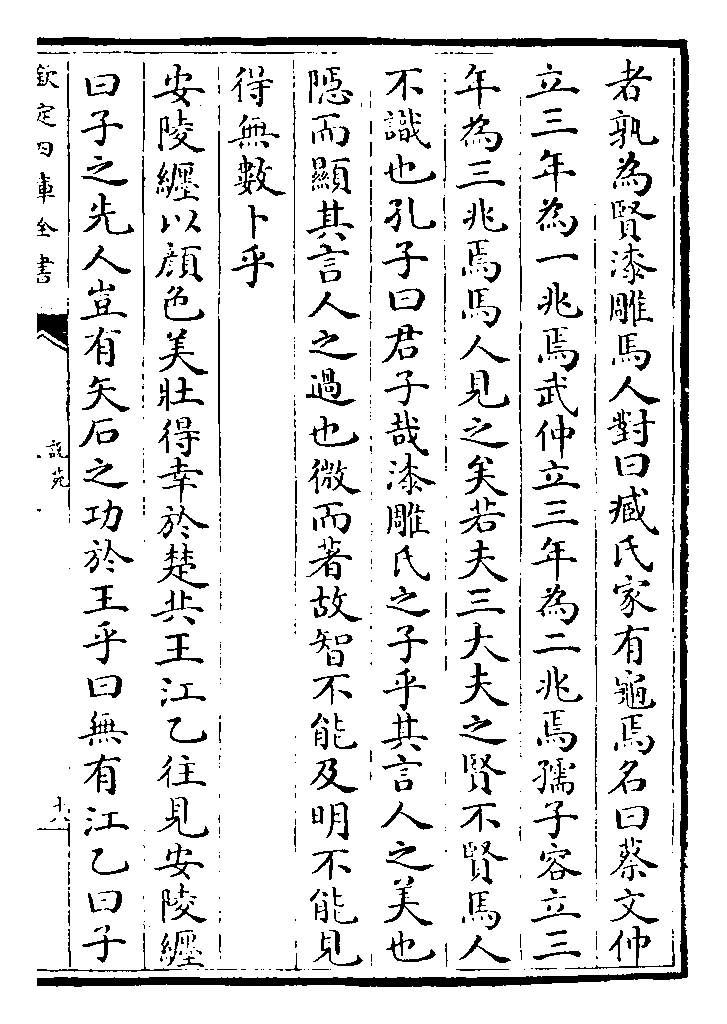 者孰為賢漆雕馬人對曰臧氏家有龜焉名曰蔡文仲
立三年為一兆焉武仲立三年為二兆焉孺子容立三
年為三兆焉馬人見之矣若夫三大夫之賢不賢馬人
不識也孔子曰君子哉漆雕氏之子乎其言人之美也
隱而顯其言人之過也微而著故智不能及明不能見
得無數卜乎
安陵纏以顔色美壯得幸於楚共王江乙往見安陵纏
曰子之先人豈有矢石之功於王乎曰無有江乙曰子
欽定四庫全書
說苑
十八